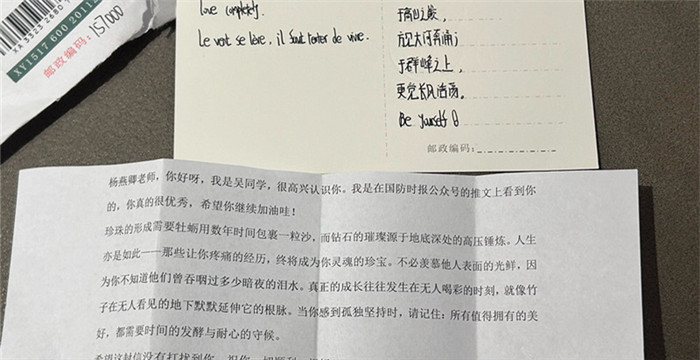 XA 3323 2680
XY1517 600 20112
邮政编码：157000
love completely.
Le vent se lève, il faut tenter de vivre.
于高山之巅，
方见大河奔涌；
于群峰之上，
更觉长风浩荡。
Be yourself
邮政编码：
杨燕卿老师，你好呀，我是吴同学，很高兴认识你。我是在国防时报公众号的推文上看到你
的，你真的很优秀，希望你继续加油哇！
珍珠的形成需要牡蛎用数年时间包裹一粒沙，而钻石的璀璨源于地底深处的高压锤炼。人生
亦是如此——那些让你疼痛的经历，终将成为你灵魂的珍宝。不必羡慕他人表面的光鲜，因
为你不知道他们曾吞咽过多少暗夜的泪水。真正的成长往往发生在无人喝彩的时刻，就像竹
子在无人看见的地下默默延伸它的根脉。当你感到孤独坚持时，请记住：所有值得拥有的美
好，都需要时间的发酵与耐心的守候。
希望这封信没有打扰到你，祝你一切顺利